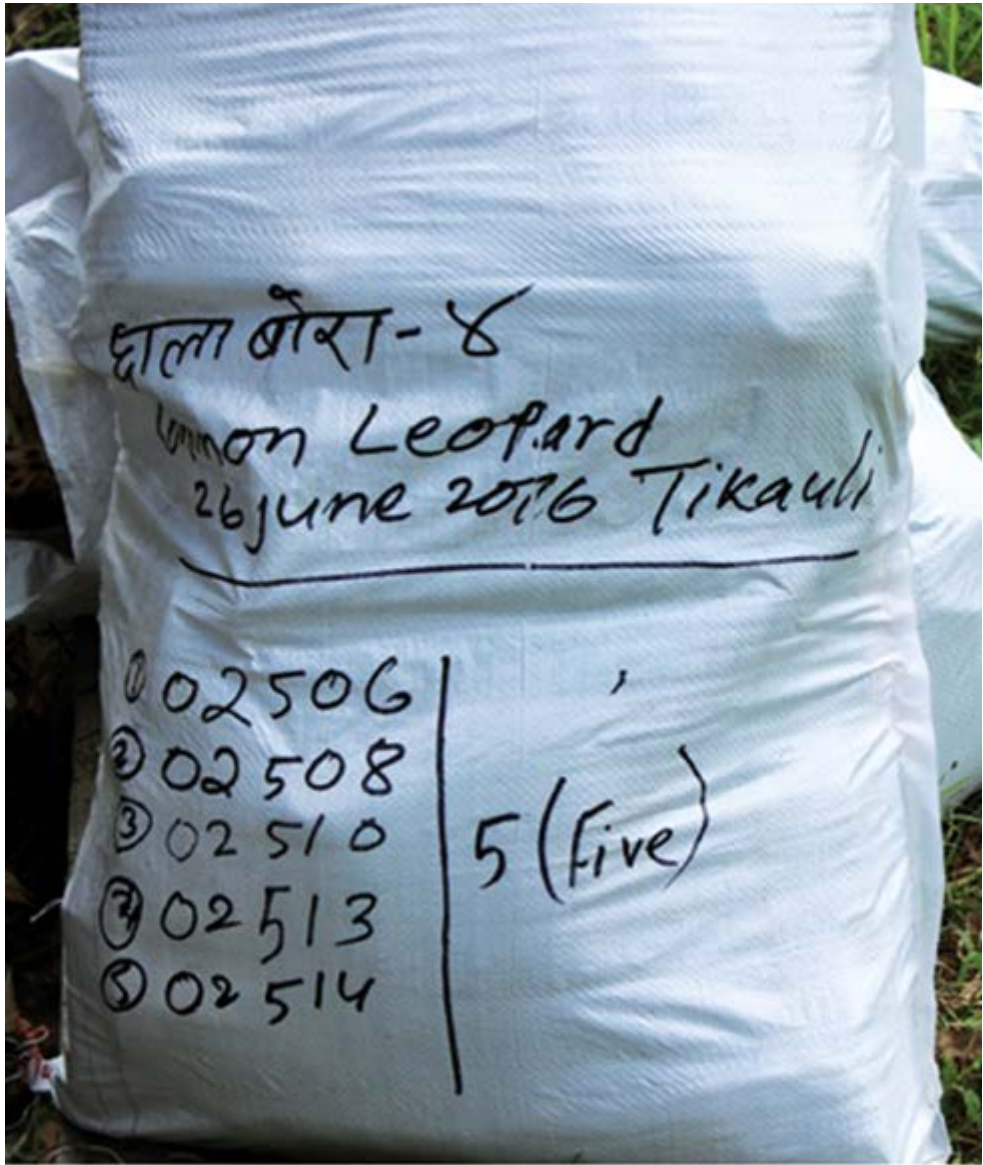 छाला बोरा - ४
Common Leopard
26 June 2016 Tikauli
① 02506
② 02508
③ 02510
④ 02513
⑤ 02514
5 (Five)